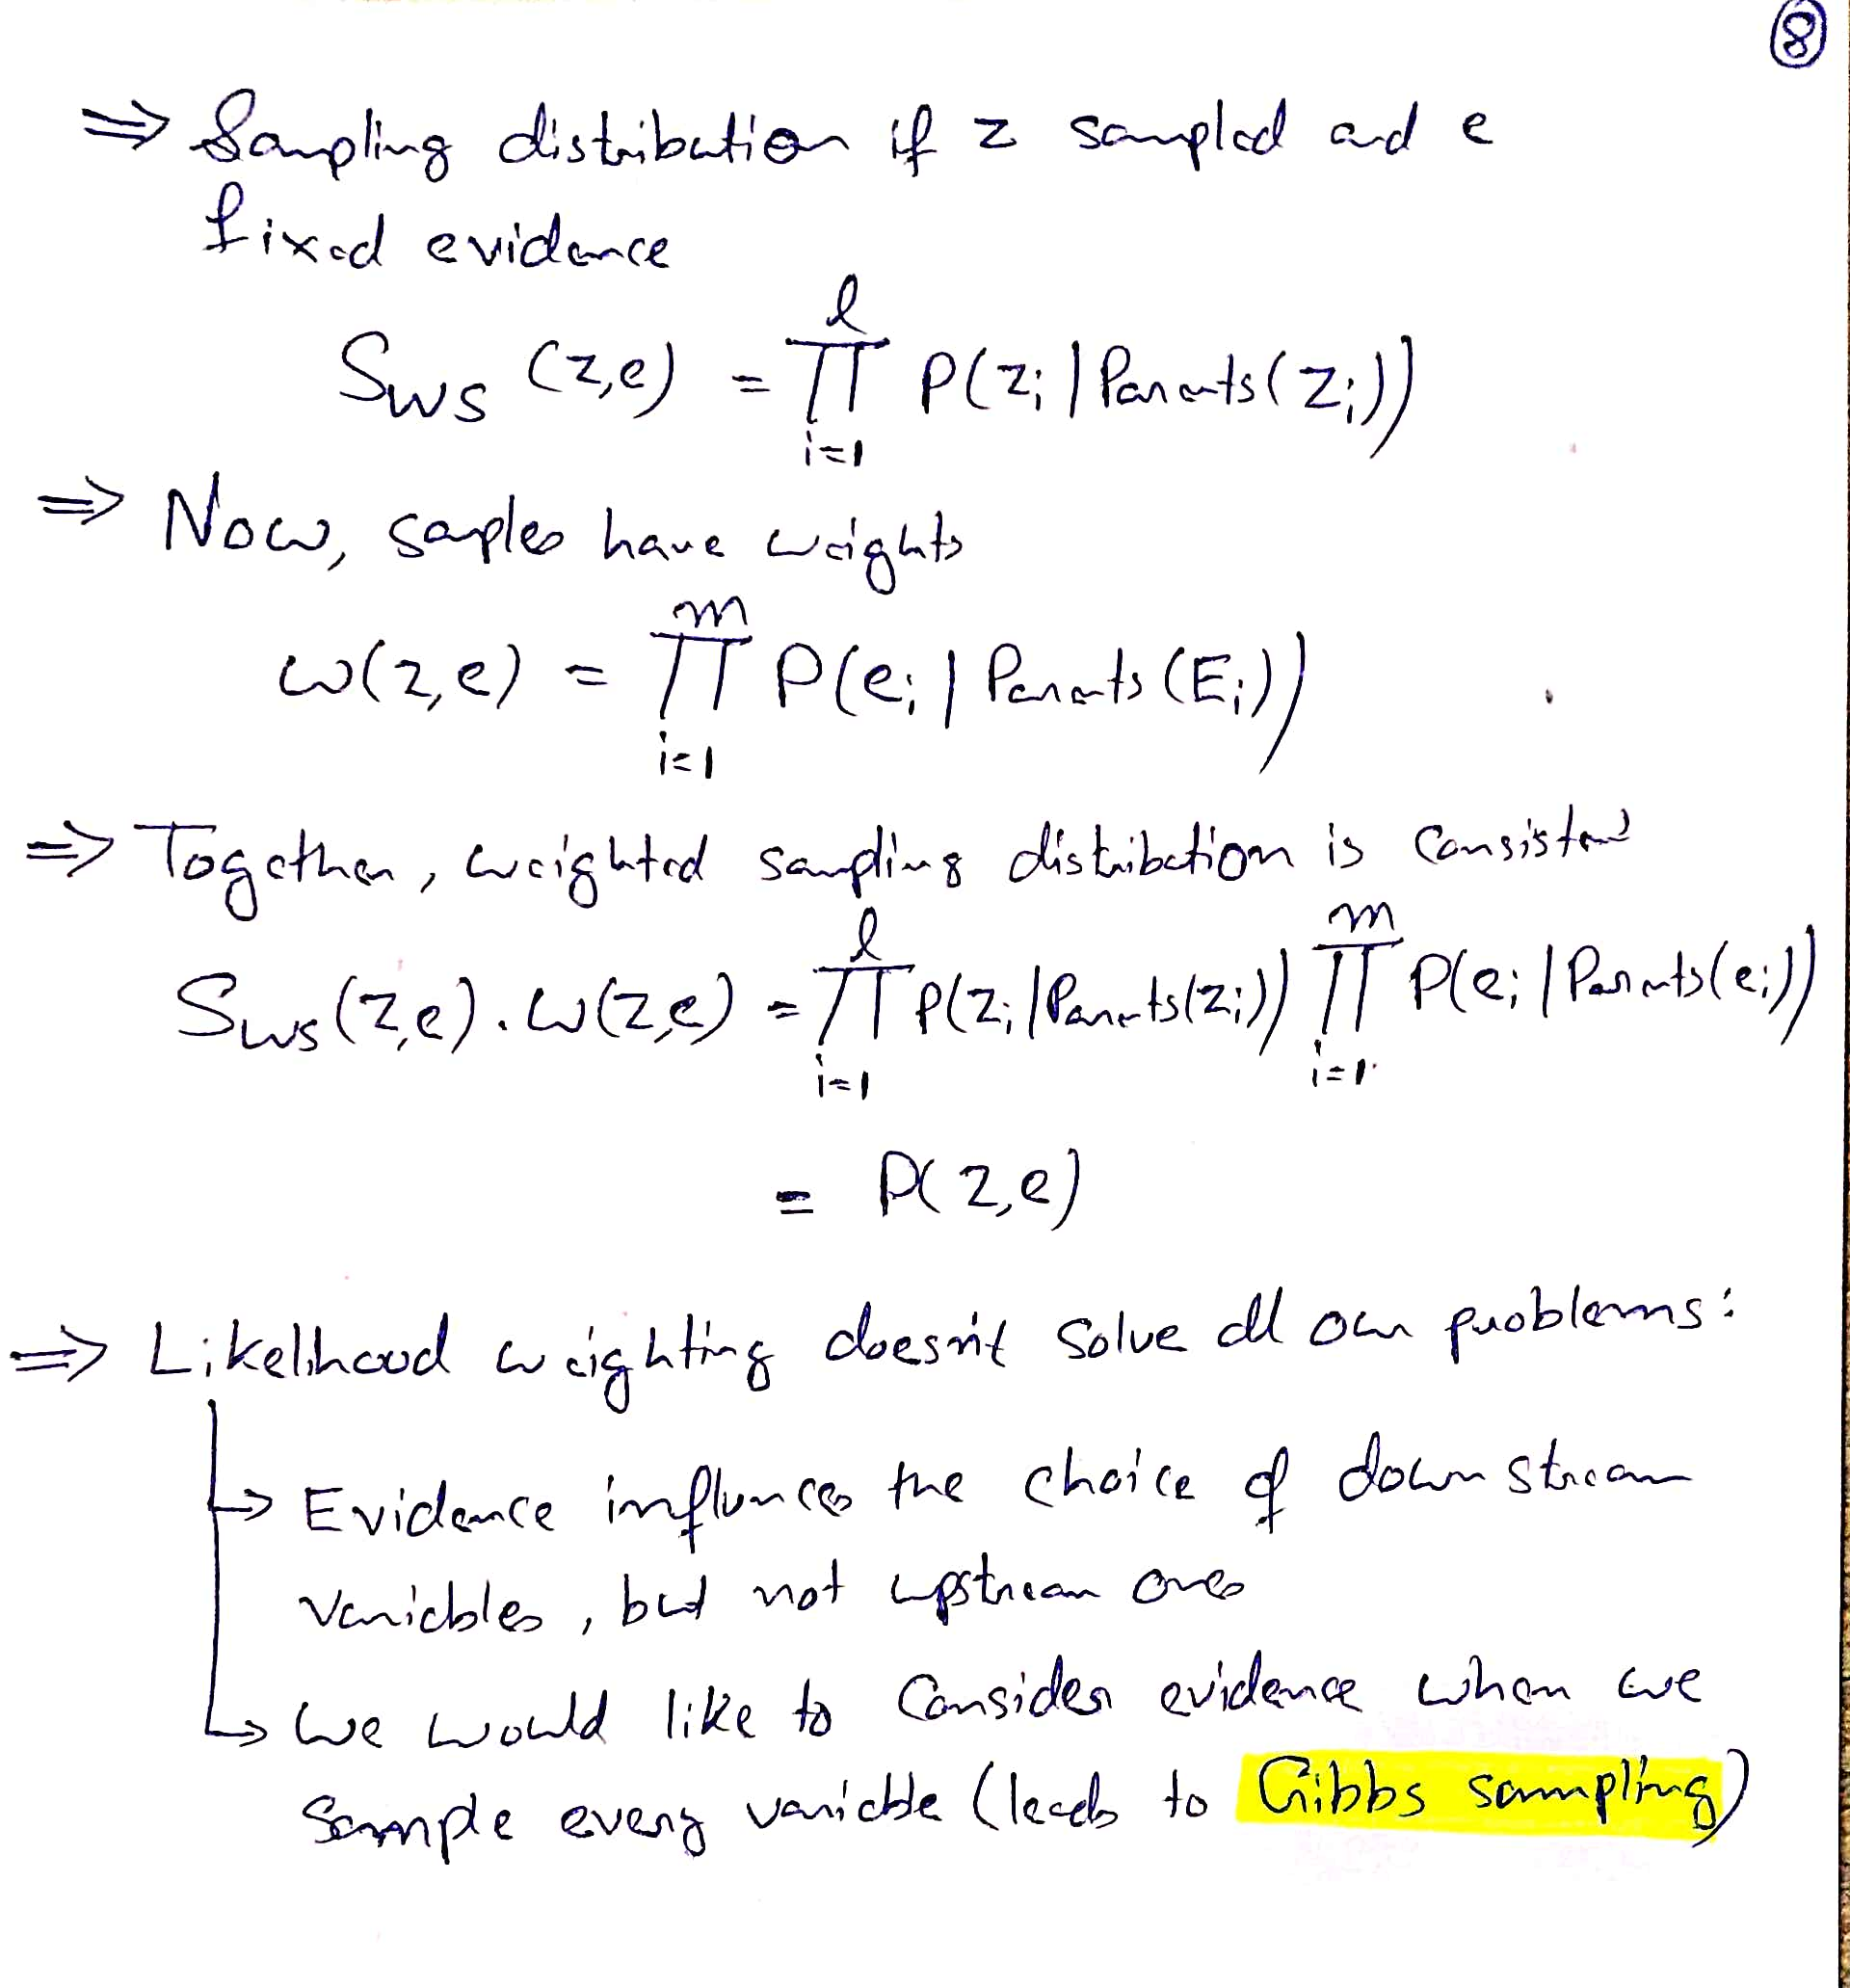 8
⇒ Sampling distribution if z sampled and e
fixed evidence
S_ws (z,e) = ∏_{i=1}^{l} P(z_i | Parents(z_i))
⇒ Now, samples have weights
w(z,e) = ∏_{i=1}^{m} P(e_i | Parents(E_i))
⇒ Together, weighted sampling distribution is consistent
S_ws(z,e) . w(z,e) = ∏_{i=1}^{l} P(z_i | Parents(z_i)) ∏_{i=1}^{m} P(e_i | Parents(e_i))
= P(z,e)
⇒ Likelihood weighting doesn't solve all our problems:
↳ Evidence influnces the choice of downstream
variables, but not upstream ones
↳ we would like to Consider evidence when we
sample every variable (leads to Gibbs sampling)